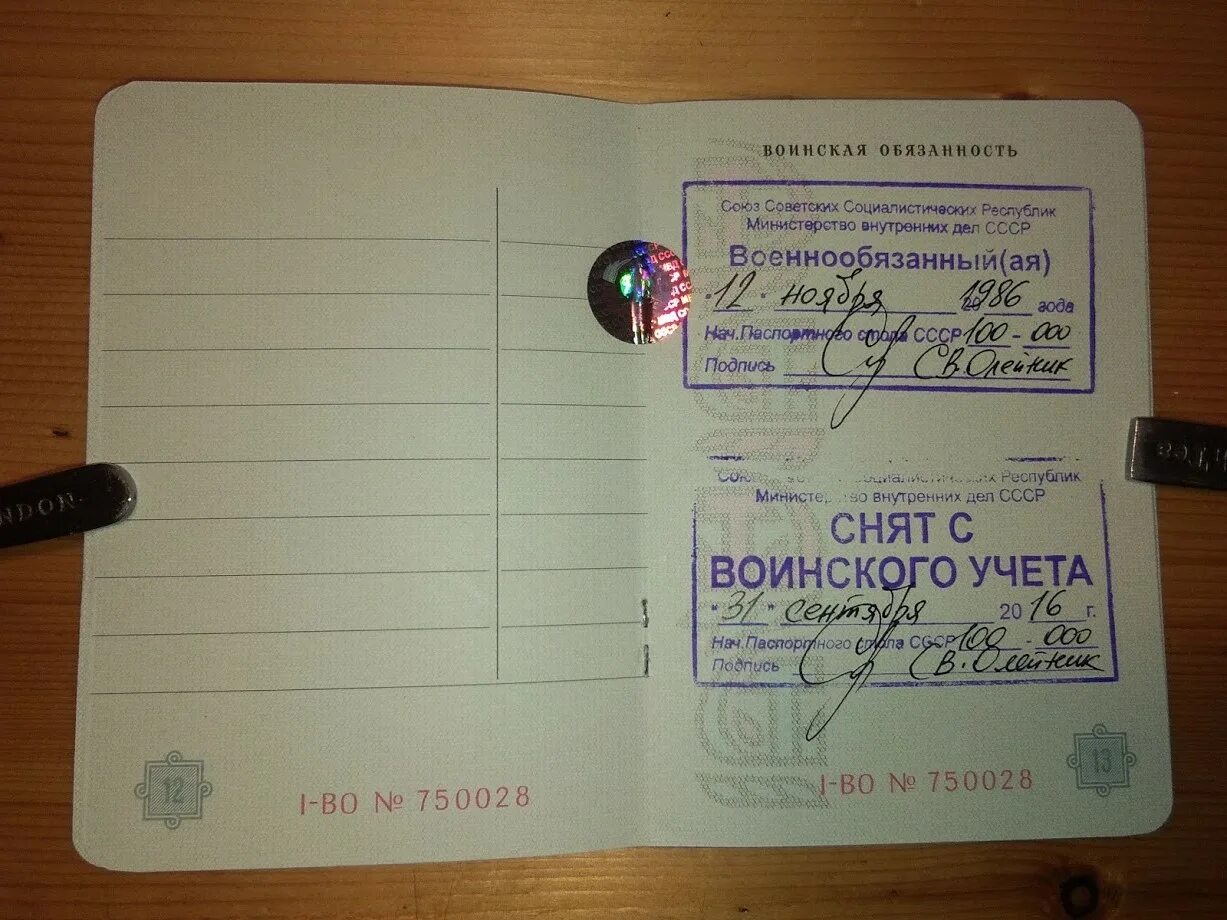 NDON
12
I-ВО № 750028
ВОИНСКАЯ ОБЯЗАННОСТЬ
Союз Советских Социалистических Республик
Министерство внутренних дел СССР
Военнообязанный(ая)
"12" ноября 1986 года
Нач.Паспортного стола СССР 100-000
Подпись С.В.Олейник
Министерство внутренних дел СССР
СНЯТ С
ВОИНСКОГО УЧЕТА
"31" сентября 2016 г.
Нач.Паспортного стола СССР 100-000
Подпись С.В.Олейник
I-ВО № 750028
13